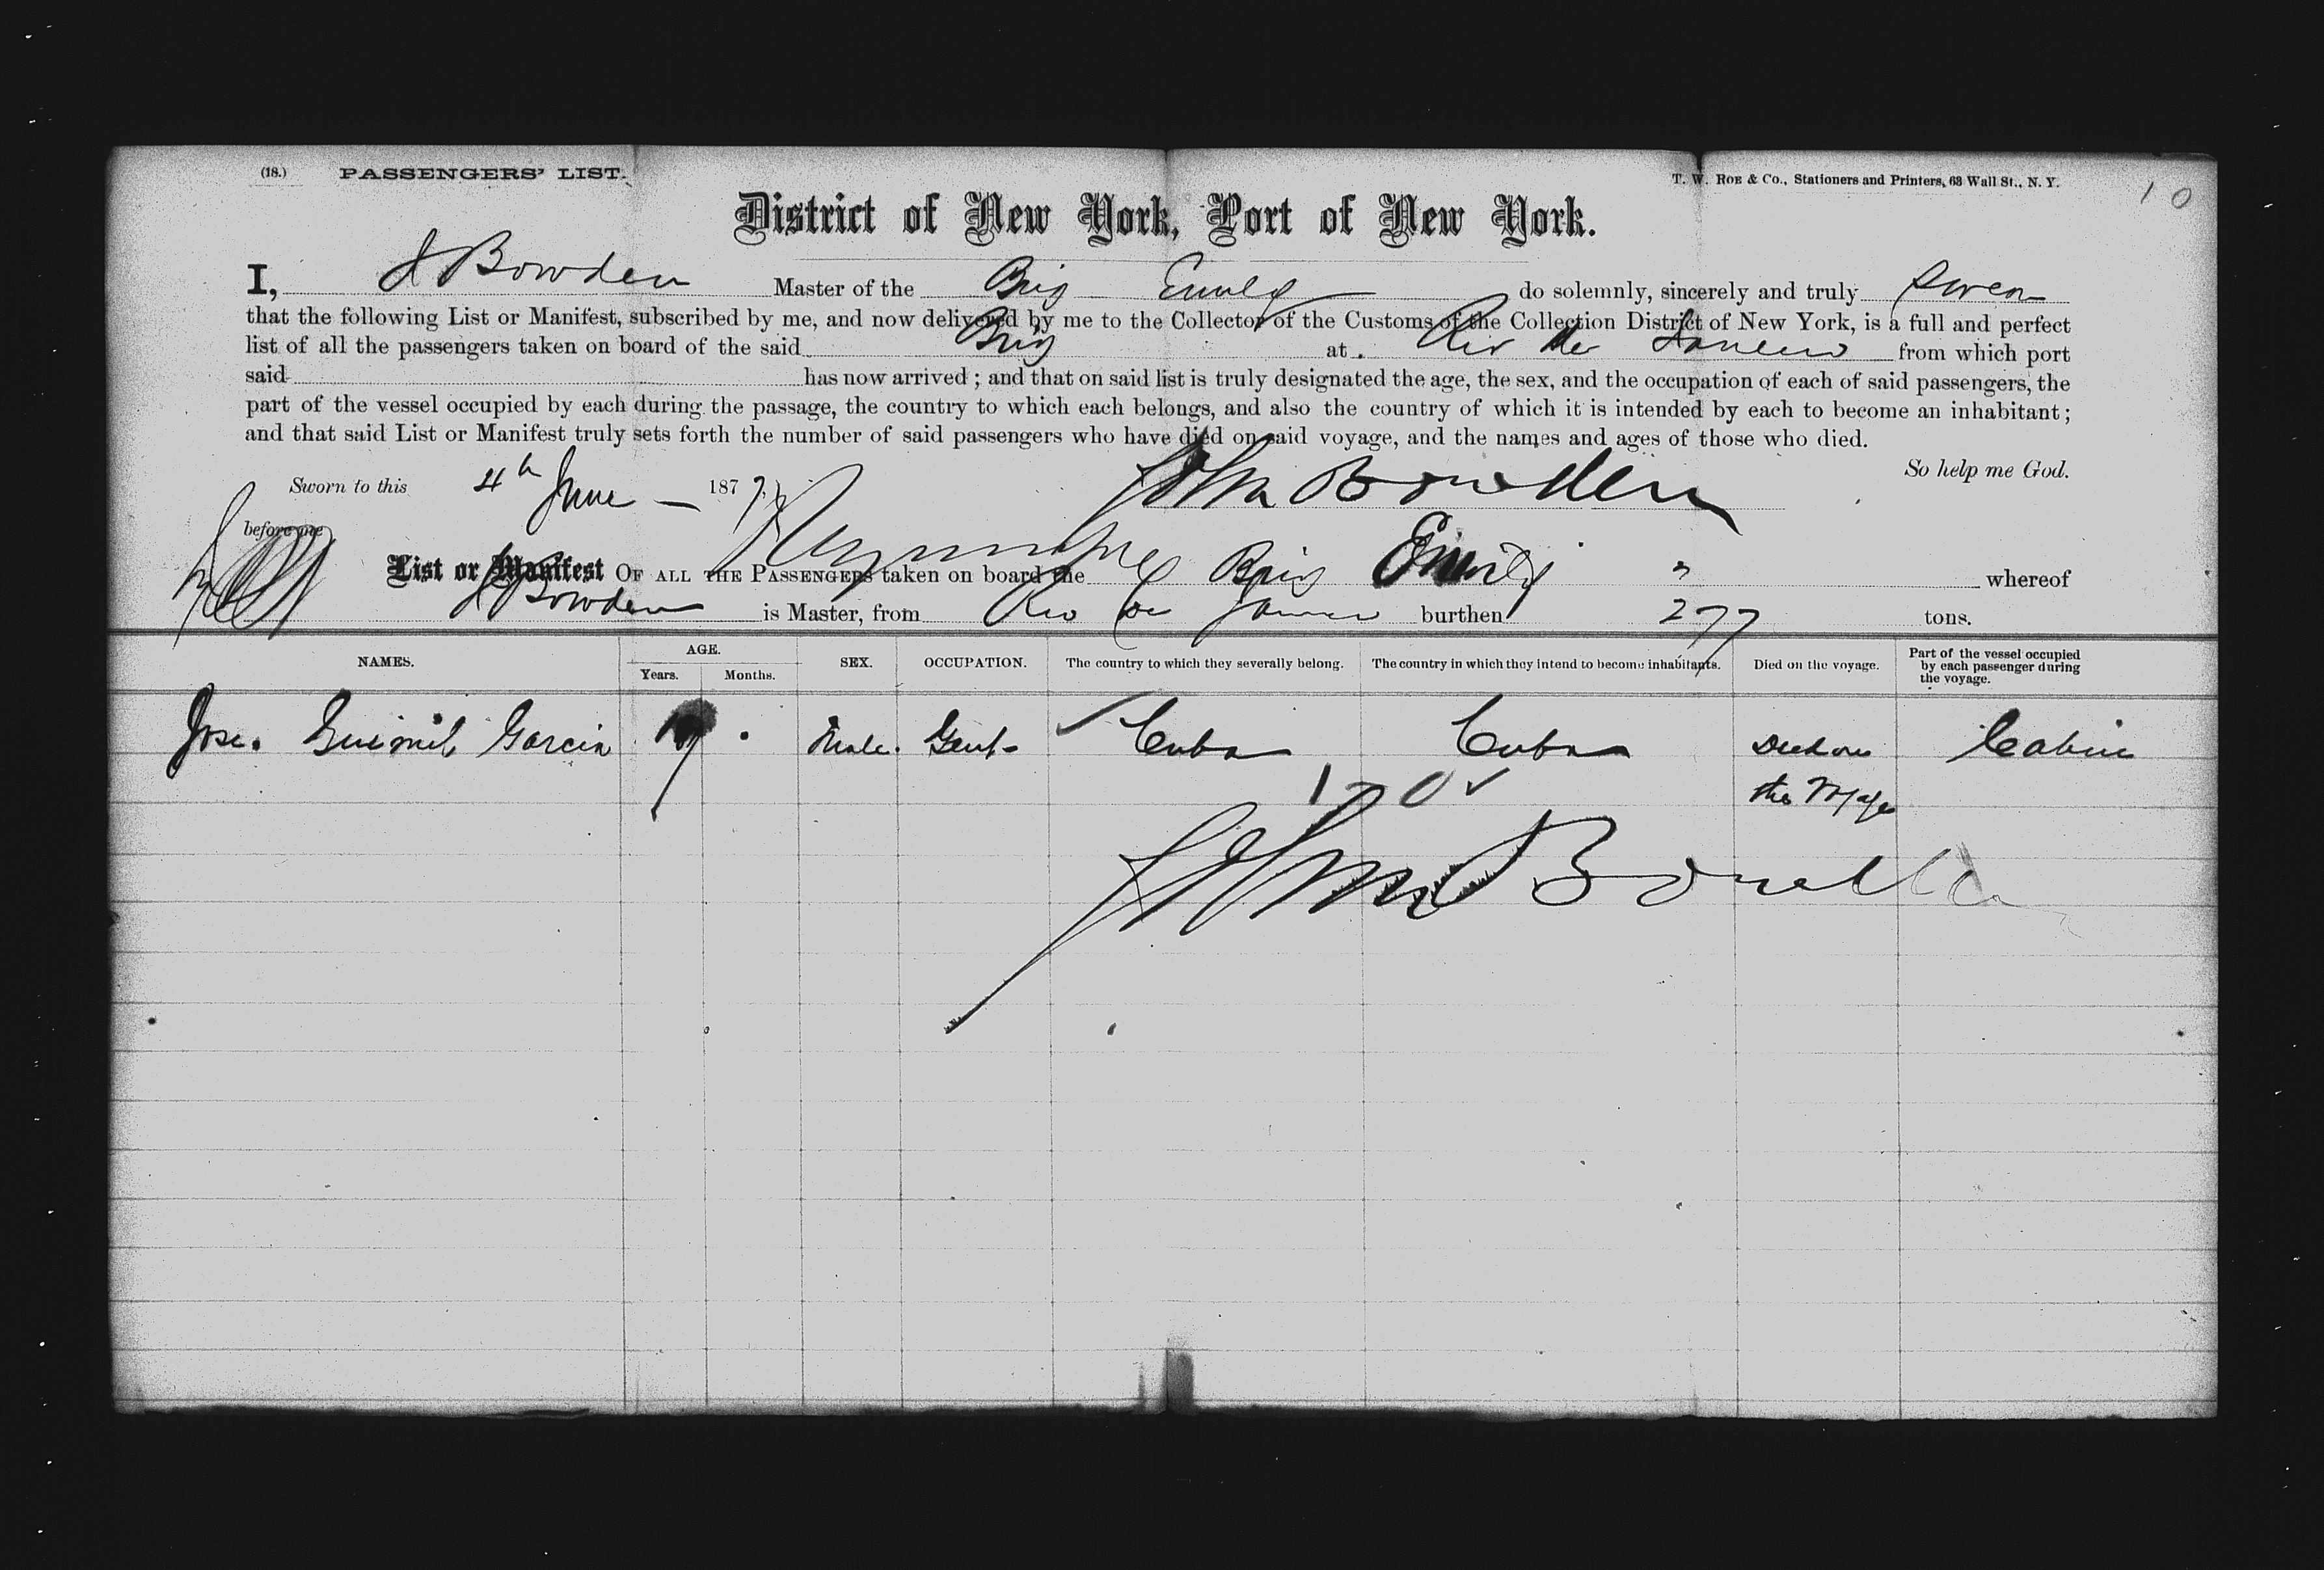 (18.) PASSENGERS' LIST. T. W. ROE & Co., Stationers and Printers, 63 Wall St., N. Y. 10
District of New York, Port of New York.
I, J Bowden Master of the Brig Emily do solemnly, sincerely and truly swear
that the following List or Manifest, subscribed by me, and now delivered by me to the Collector of the Customs of the Collection District of New York, is a full and perfect
list of all the passengers taken on board of the said Brig at Rio de Janeiro from which port
said has now arrived ; and that on said list is truly designated the age, the sex, and the occupation of each of said passengers, the
part of the vessel occupied by each during the passage, the country to which each belongs, and also the country of which it is intended by each to become an inhabitant ;
and that said List or Manifest truly sets forth the number of said passengers who have died on said voyage, and the names and ages of those who died.
So help me God.
Sworn to this 4th June 1877 John Bowden
before me
List or Manifest OF ALL THE PASSENGERS taken on board the Brig Emily " whereof
J Bowden is Master, from Rio de Janeiro burthen 277 tons.
NAMES. AGE. Years. Months. SEX. OCCUPATION. The country to which they severally belong. The country in which they intend to become inhabitants. Died on the voyage. Part of the vessel occupied by each passenger during the voyage.
Jose Guimil Garcia male. Gent Cuba Cuba Died on Cabin
the Voyage
1-0
John Bowden